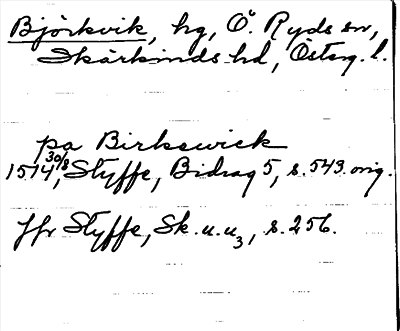 Björkvik, hg, Ö. Ryds sn,
Skärkinds hd, Österg. l.
pa Birkewick
1514 30/8, Styffe, Bidrag 5, s. 543. orig.
jfr Styffe, Sk. u. u3, s. 256.